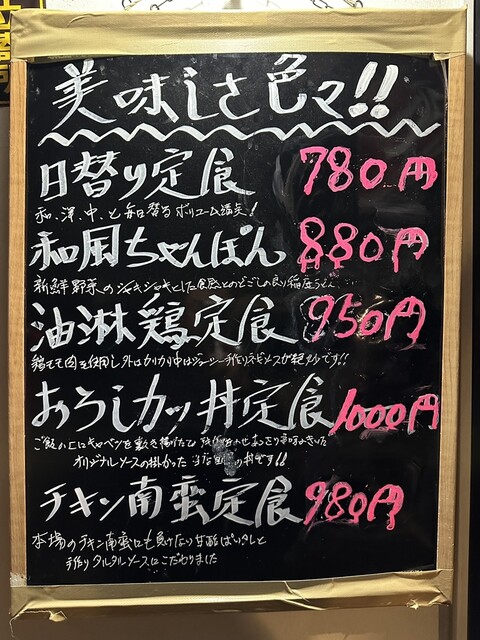 美味しさ色々!!
日替り定食 780円
和、洋、中、と毎日替る ボリューム満点!
和風ちゃんぽん 880円
新鮮野菜のシャキシャキとした食感とのどごしの良い稲庭うどん
油淋鶏定食 950円
鶏もも肉を使用し外はカリカリ中はジューシー手作りネギソースが絶妙です!!
おろしカツ丼定食 1000円
ご飯の上にキャベツを敷き揚げたて
オリジナルソースの掛かった 当店自慢の丼です!!
チキン南蛮定食 980円
本場のチキン南蛮にも負けない甘酢ぱいタレと
手作りタルタルソースにこだわりました